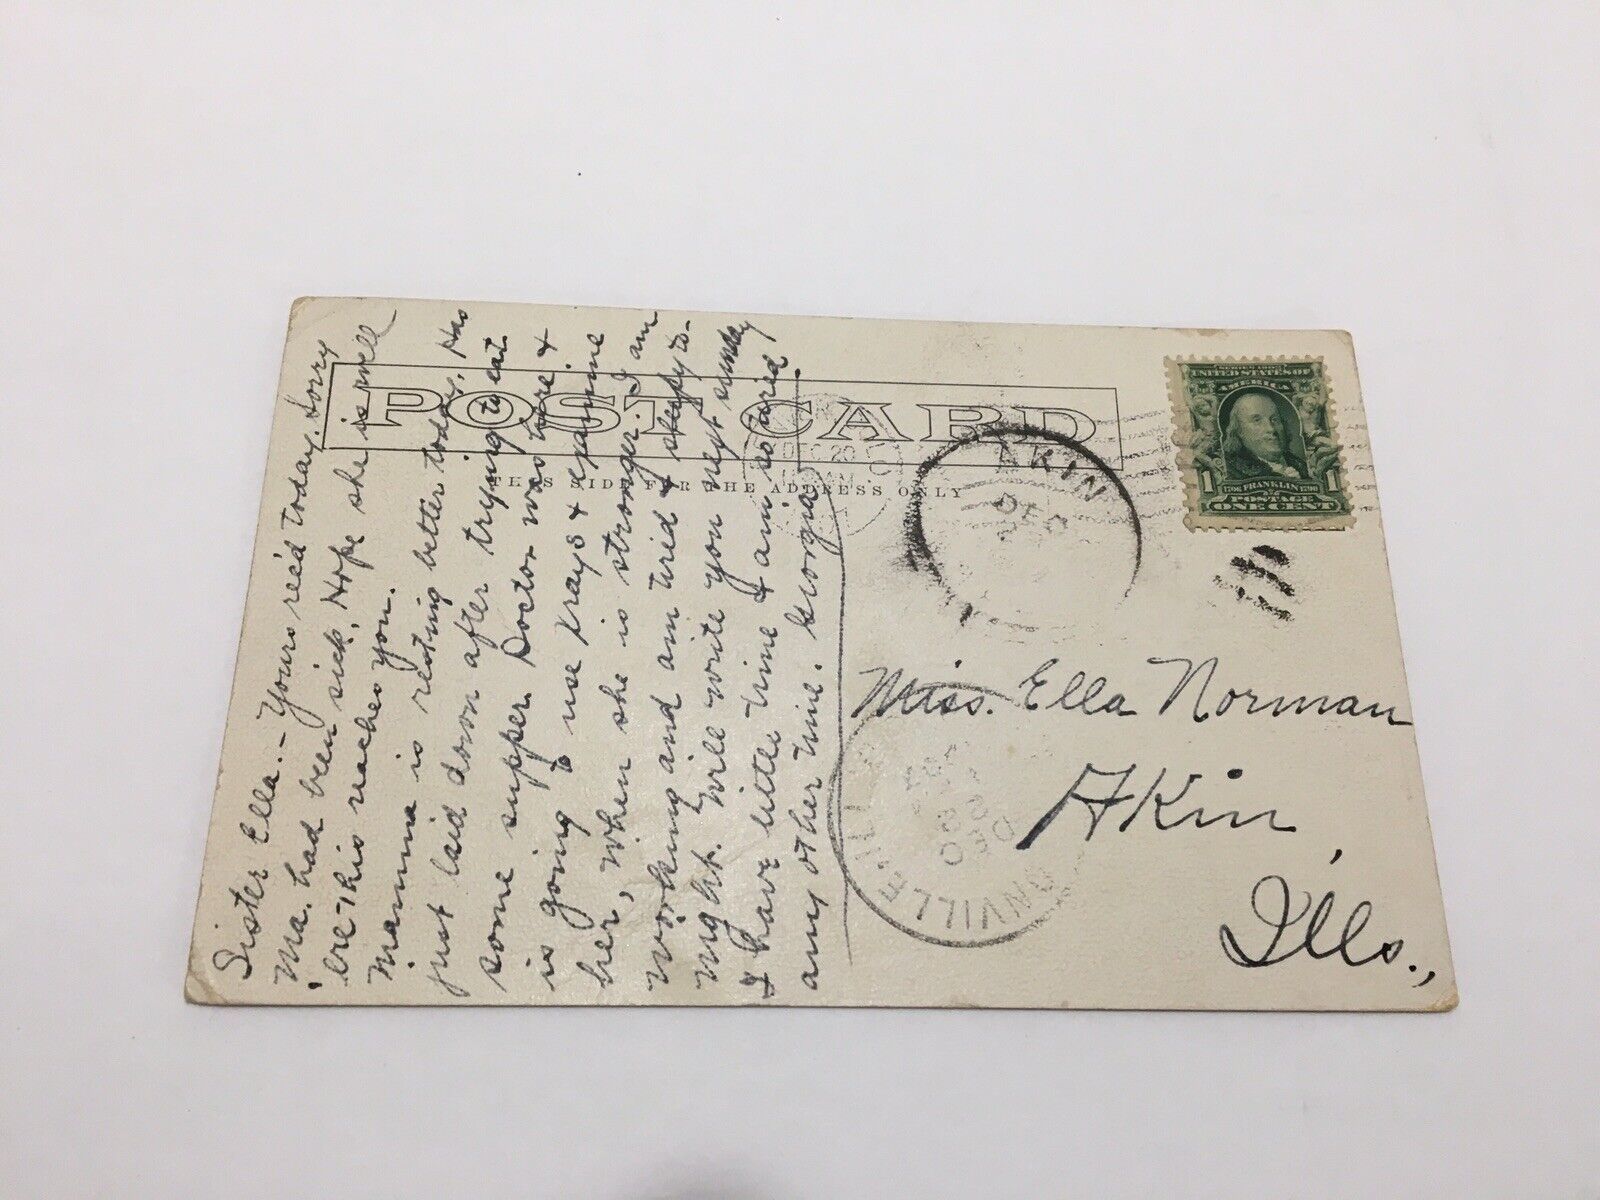 POST CARD
THIS SIDE FOR THE ADDRESS ONLY
Sister Ella.- Yours rec'd today. Sorry
Ma. had been sick. Hope she is well
ere this reaches you.
Mamma is resting better today. Has
just laid down after trying to eat
some supper. Doctor was here &
is going to use Xrays &
her, when she is stronger. I am
working and am tired & sleepy to-
night. Will write you next Sunday
I have little time & am so tired
any other time. Georgia
UNITED STATES OF
AMERICA
1706 FRANKLIN 1790
1 POSTAGE 1
ONE CENT
AKIN
DEC 20
VILLE
DEC
20
Miss. Ella Norman
Akin,
Ills.,